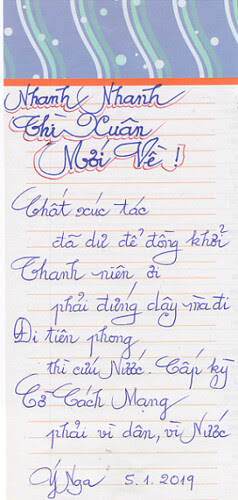 Nhanh Nhanh
Thì Xuân
Mới Về !
Chất xúc tác
đã dư để đồng khởi
Thanh niên ơi
phải đứng dậy mà đi
Đi tiên phong
thì cứu Nước. Cấp kỳ
Cờ Cách Mạng
phải vì dân, vì Nước
Ý Nga 5.1.2019